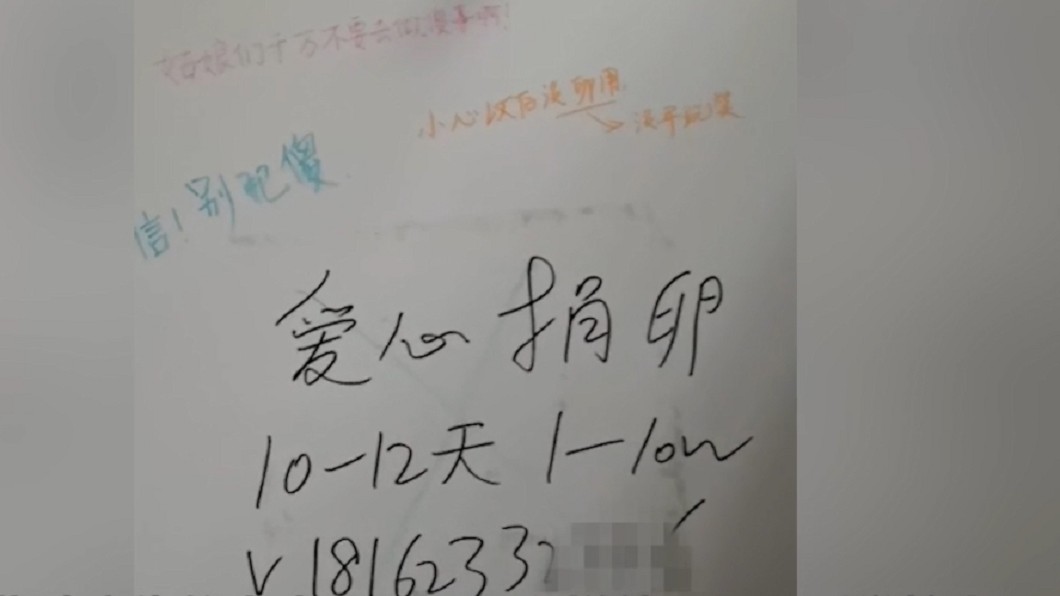 姑娘们千万不要去做没事啊!
小心以后没卵用
信!别犯傻
爱心捐卵
10-12天 1-10w
V 1816233